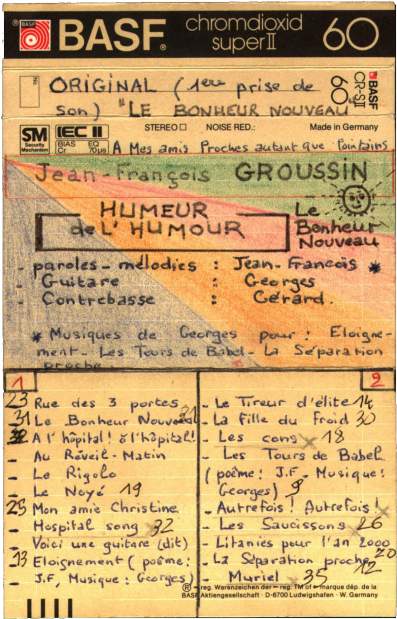 BASF® chromdioxid super II 60
ORIGINAL (1ère prise de
son) "LE BONHEUR NOUVEAU"
BASF CR-SII 60
SM Security Mechanism IEC II BIAS Cr EQ 70µs STEREO NOISE RED.: Made in Germany
A Mes amis Proches autant que lointains
Jean-François GROUSSIN
HUMEUR
de L'HUMOUR
Le
Bonheur
Nouveau
- paroles - mélodies : Jean-Francois *
- Guitare : Georges
- Contrebasse : Gérard.
* Musiques de Georges pour : Eloigne-
ment - Les Tours de Babel - La Séparation
proche
1
23 Rue des 3 portes
31 Le Bonheur Nouveau
32 A l'hôpital! à l'hôpital!
- Au Réveil-Matin
- Le Rigolo
- Le Noyé 19
25 Mon amie Christine
- Hospital song 32
- Voici une guitare (dit)
13 Eloignement (poème:
- J.F, Musique: Georges)
2
- Le Tireur d'élite 14
- La Fille du Froid 30
- Les cons 18
- Les Tours de Babel
(poème: J.F - Musique:
Georges) 9
- Autrefois! Autrefois!
- Les Saucissons 26
- Litanies pour l'an 2000
- La Séparation proche 12
- Muriel 35
® = reg. Warenzeichen der = reg. TM of = marque dép. de la
BASF Aktiengesellschaft · D-6700 Ludwigshafen · W. Germany